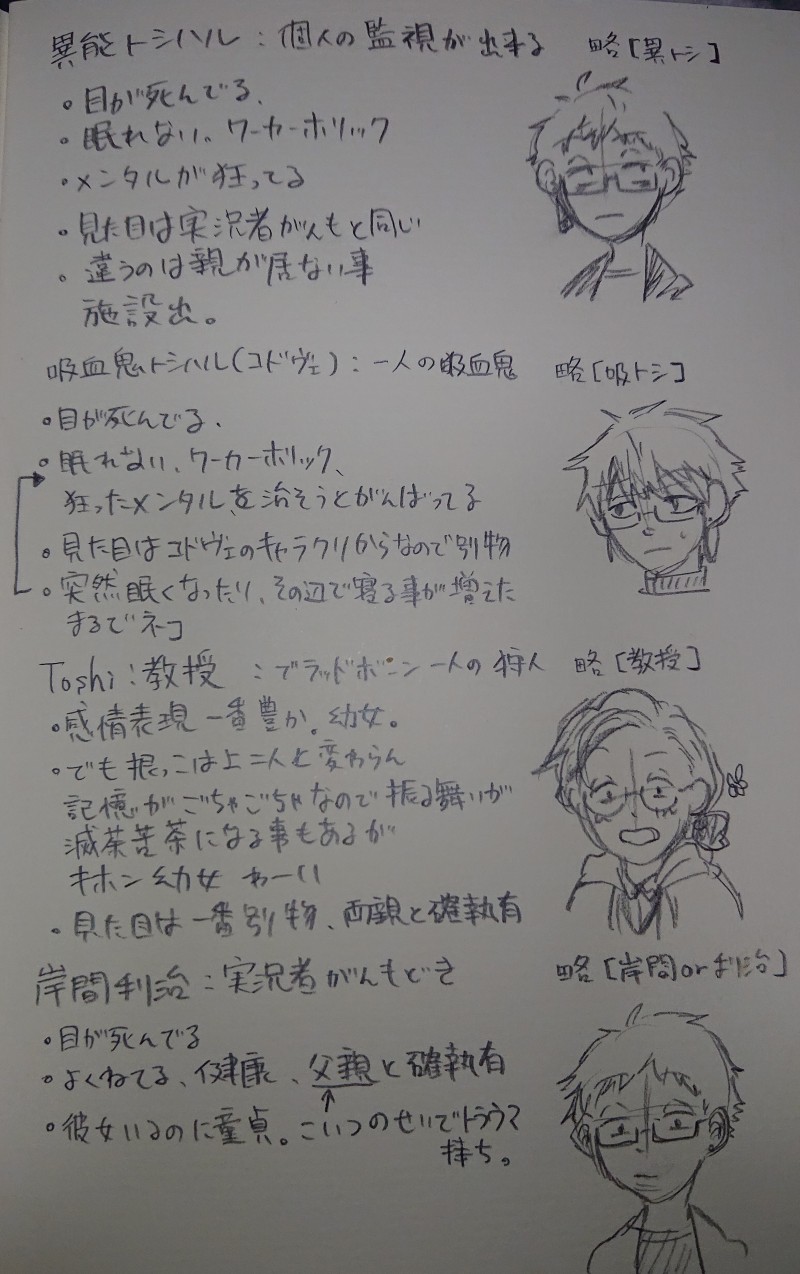 異能トシハル：個人の監視が出来る 略[異トシ]
・目が死んでる、
・眠れない、ワーカーホリック
・メンタルが狂ってる
・見た目は実況者がんもと同じ
・違うのは親が居ない事
施設出。
吸血鬼トシハル(コドヴェ)：一人の吸血鬼 略[吸トシ]
・目が死んでる、
・眠れない、ワーカーホリック、
狂ったメンタルを治そうとがんばってる
・見た目はコドヴェのキャラクリからなので別物
・突然眠くなったり、その辺で寝る事が増えた
まるでネコ
Toshi：教授：ブラッドボーン一人の狩人 略[教授]
・感情表現一番豊か。幼女。
・でも根っこは上二人と変わらん
記憶がごちゃごちゃなので振る舞いが
滅茶苦茶になる事もあるが
キホン幼女 わーい
・見た目は一番別物、両親と確執有
岸間利治：実況者がんもどき 略[岸間or利治]
・目が死んでる
・よくねてる、健康、父親と確執有
・彼女いるのに童貞。こいつのせいでトラウマ
持ち。